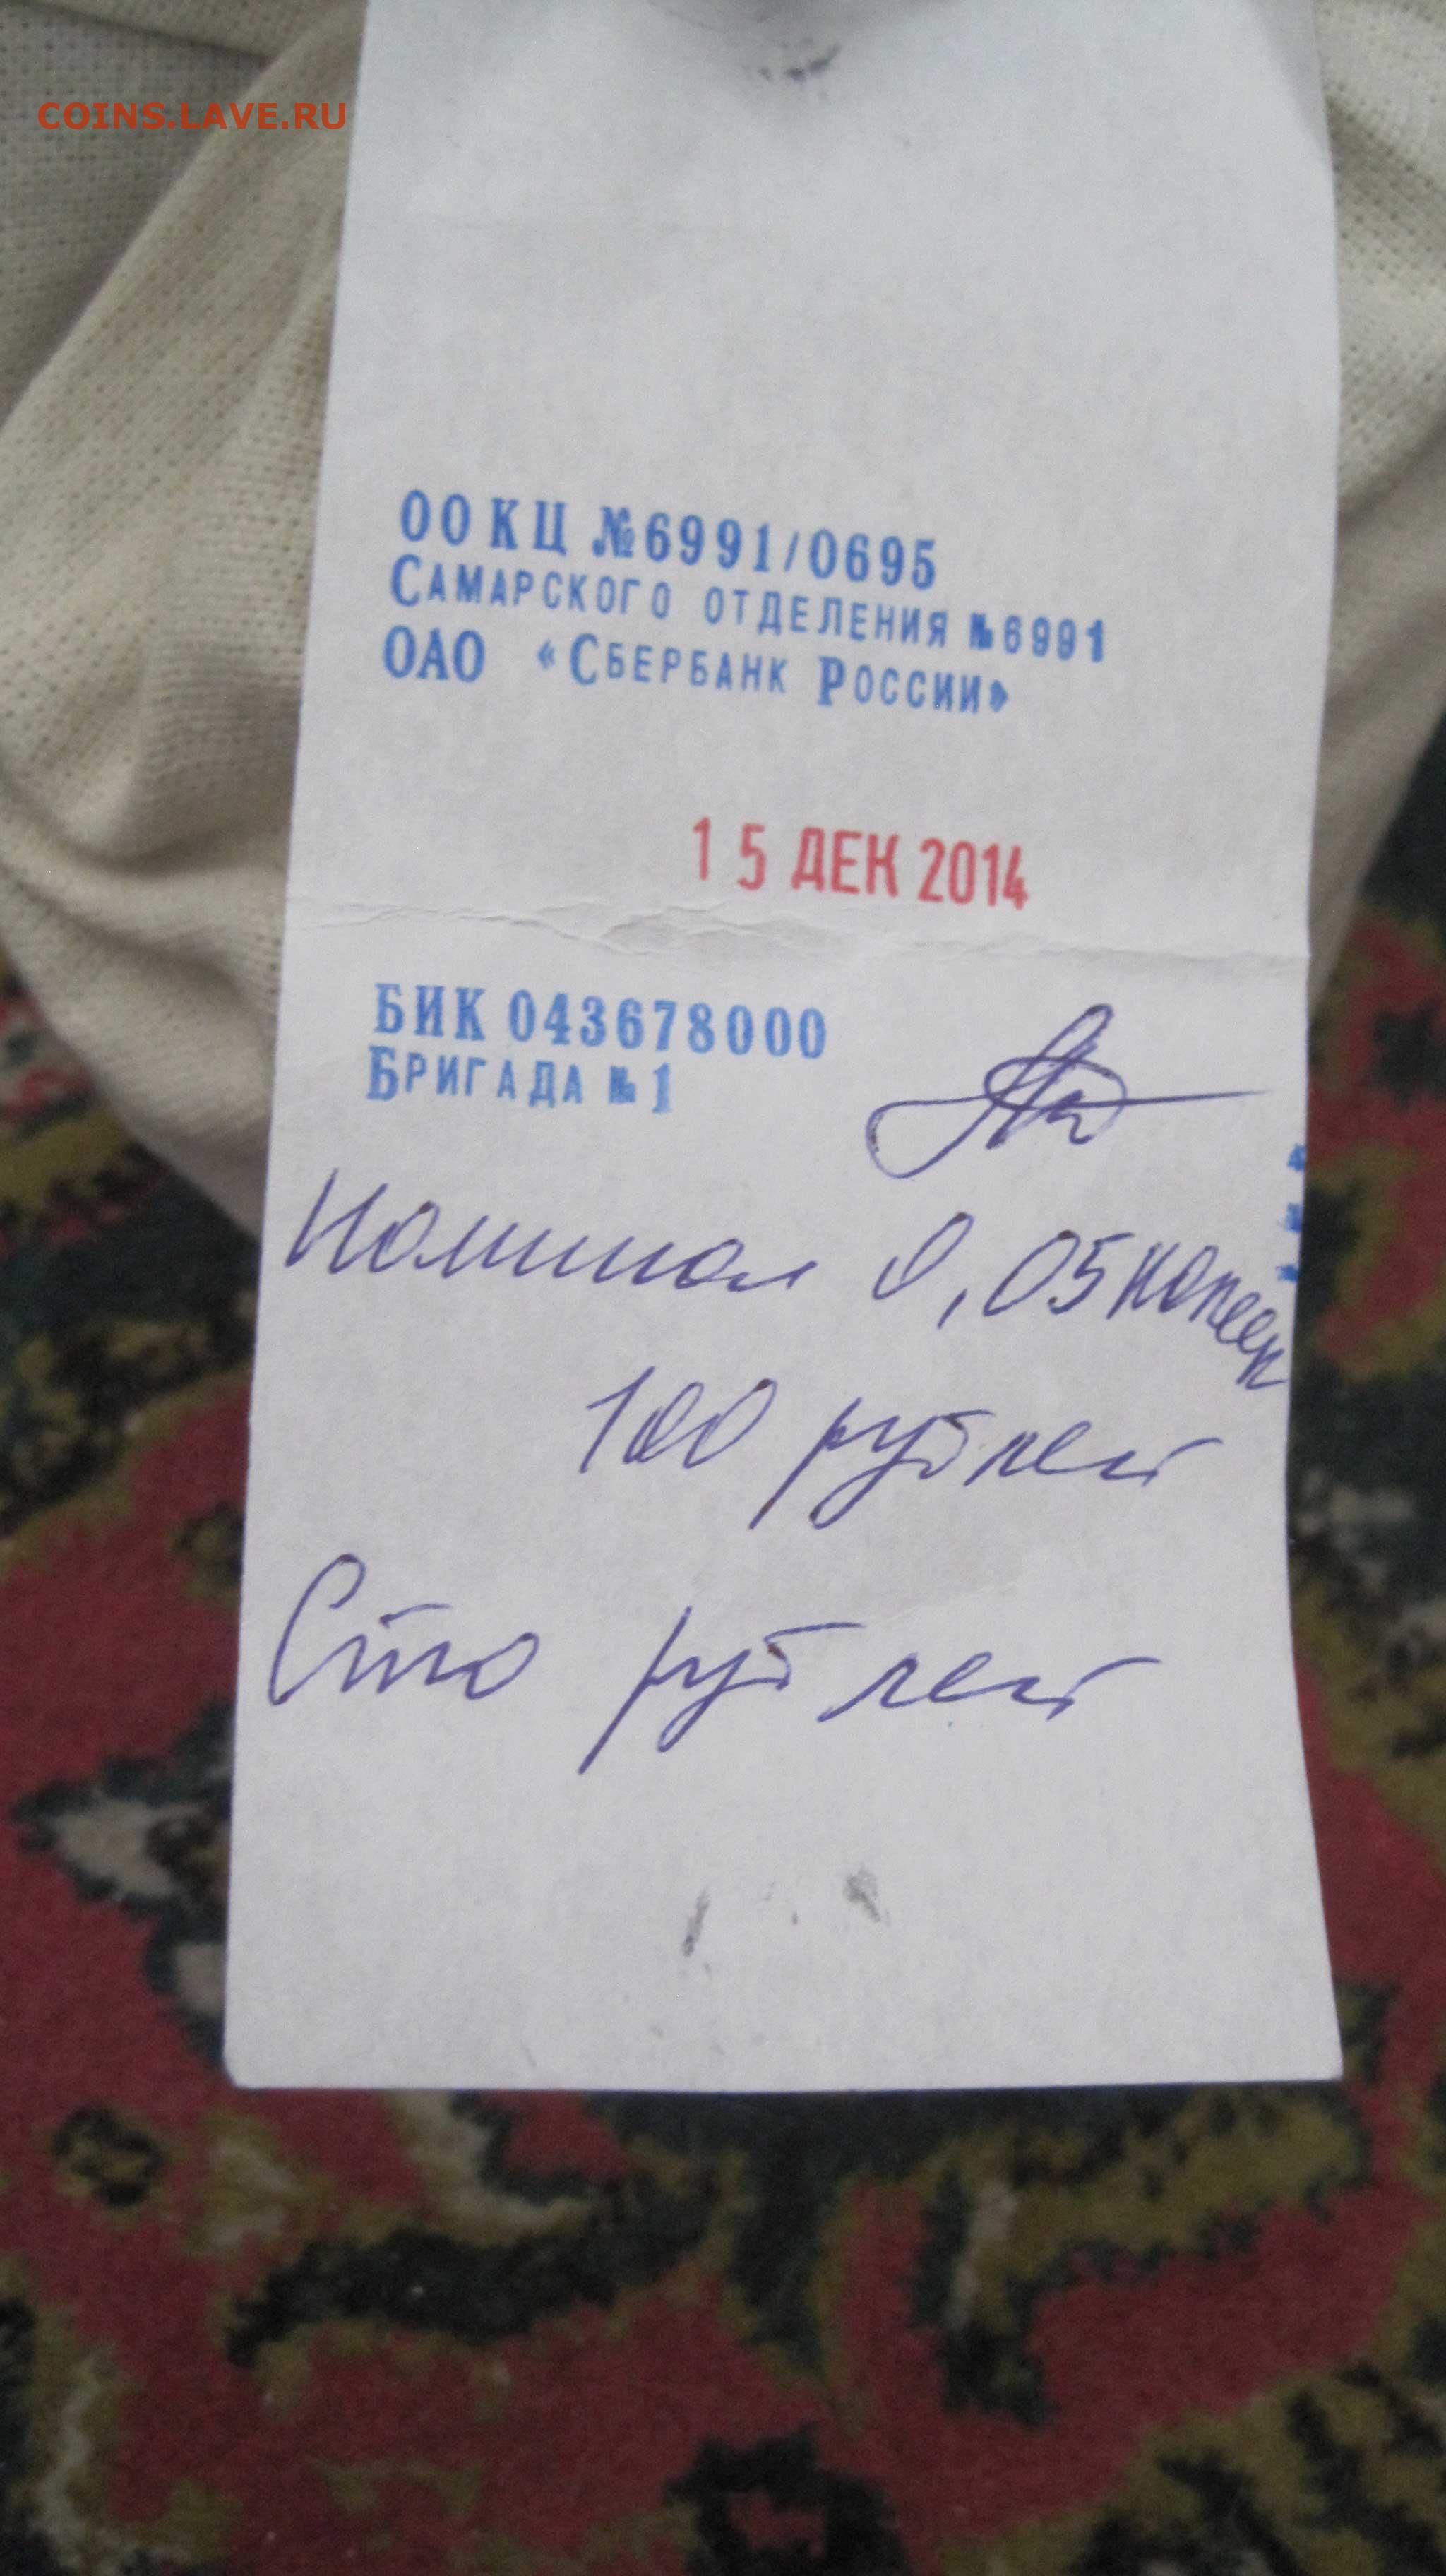 COINS.LAVE.RU
ОО КЦ №6991/0695
САМАРСКОГО ОТДЕЛЕНИЯ №6991
ОАО «СБЕРБАНК РОССИИ»
15 ДЕК 2014
БИК 043678000
БРИГАДА №1
Номинал 0,05 копеек
100 рублей
Сто рублей